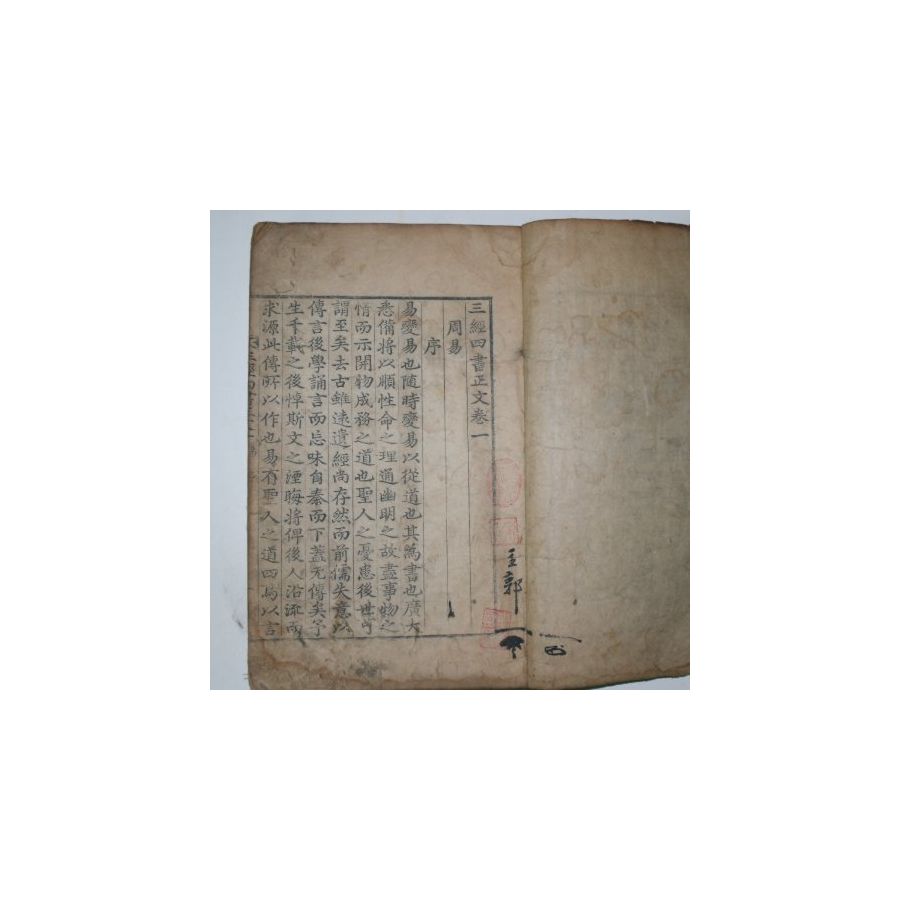 三經四書正文卷一
周易
序
易變易也随時變易以從道也其爲書也廣大
悉備將以順性命之理通幽明之故盡事物之
情而示開物成務之道也聖人之憂患後世可
謂至矣去古雖遠遺經尚存然而前儒失意以
傳言後學誦言而忘味自秦而下蓋无傳矣予
生千載之後悼斯文之湮晦將俾後人沿流而
求源此傳所以作也易有聖人之道四焉以言
三經四書正文
郭